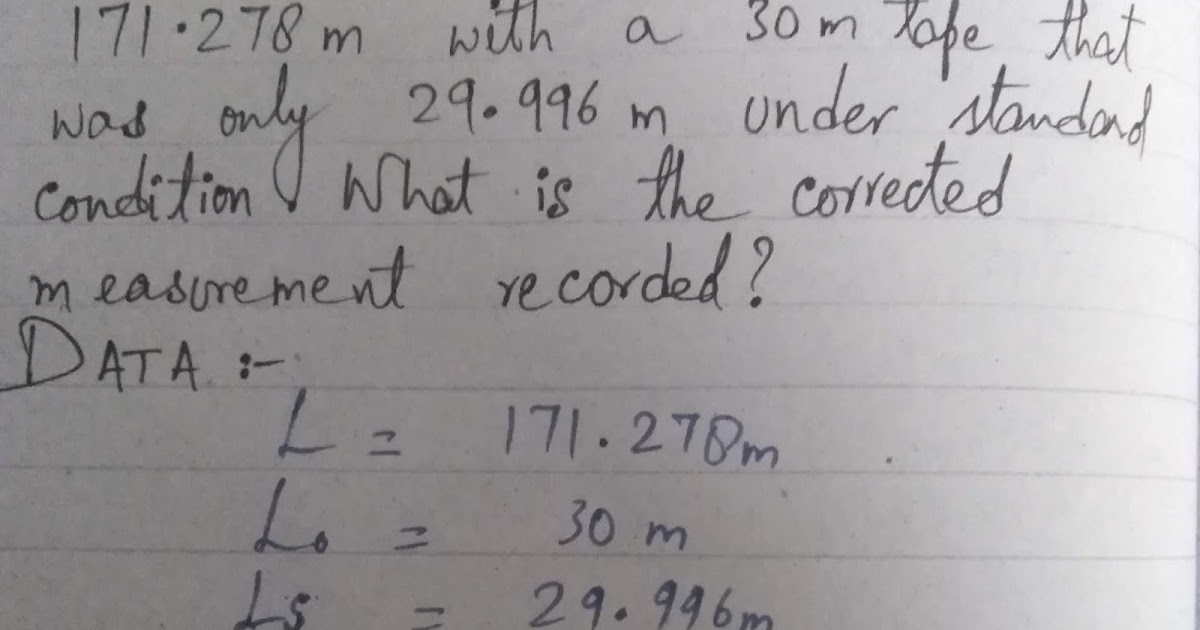 171.278 m with a 30 m tape that
was only 29.996 m under standard
condition. What is the corrected
measurement recorded?
DATA :-
L = 171.278m
L₀ = 30 m
Ls = 29.996m